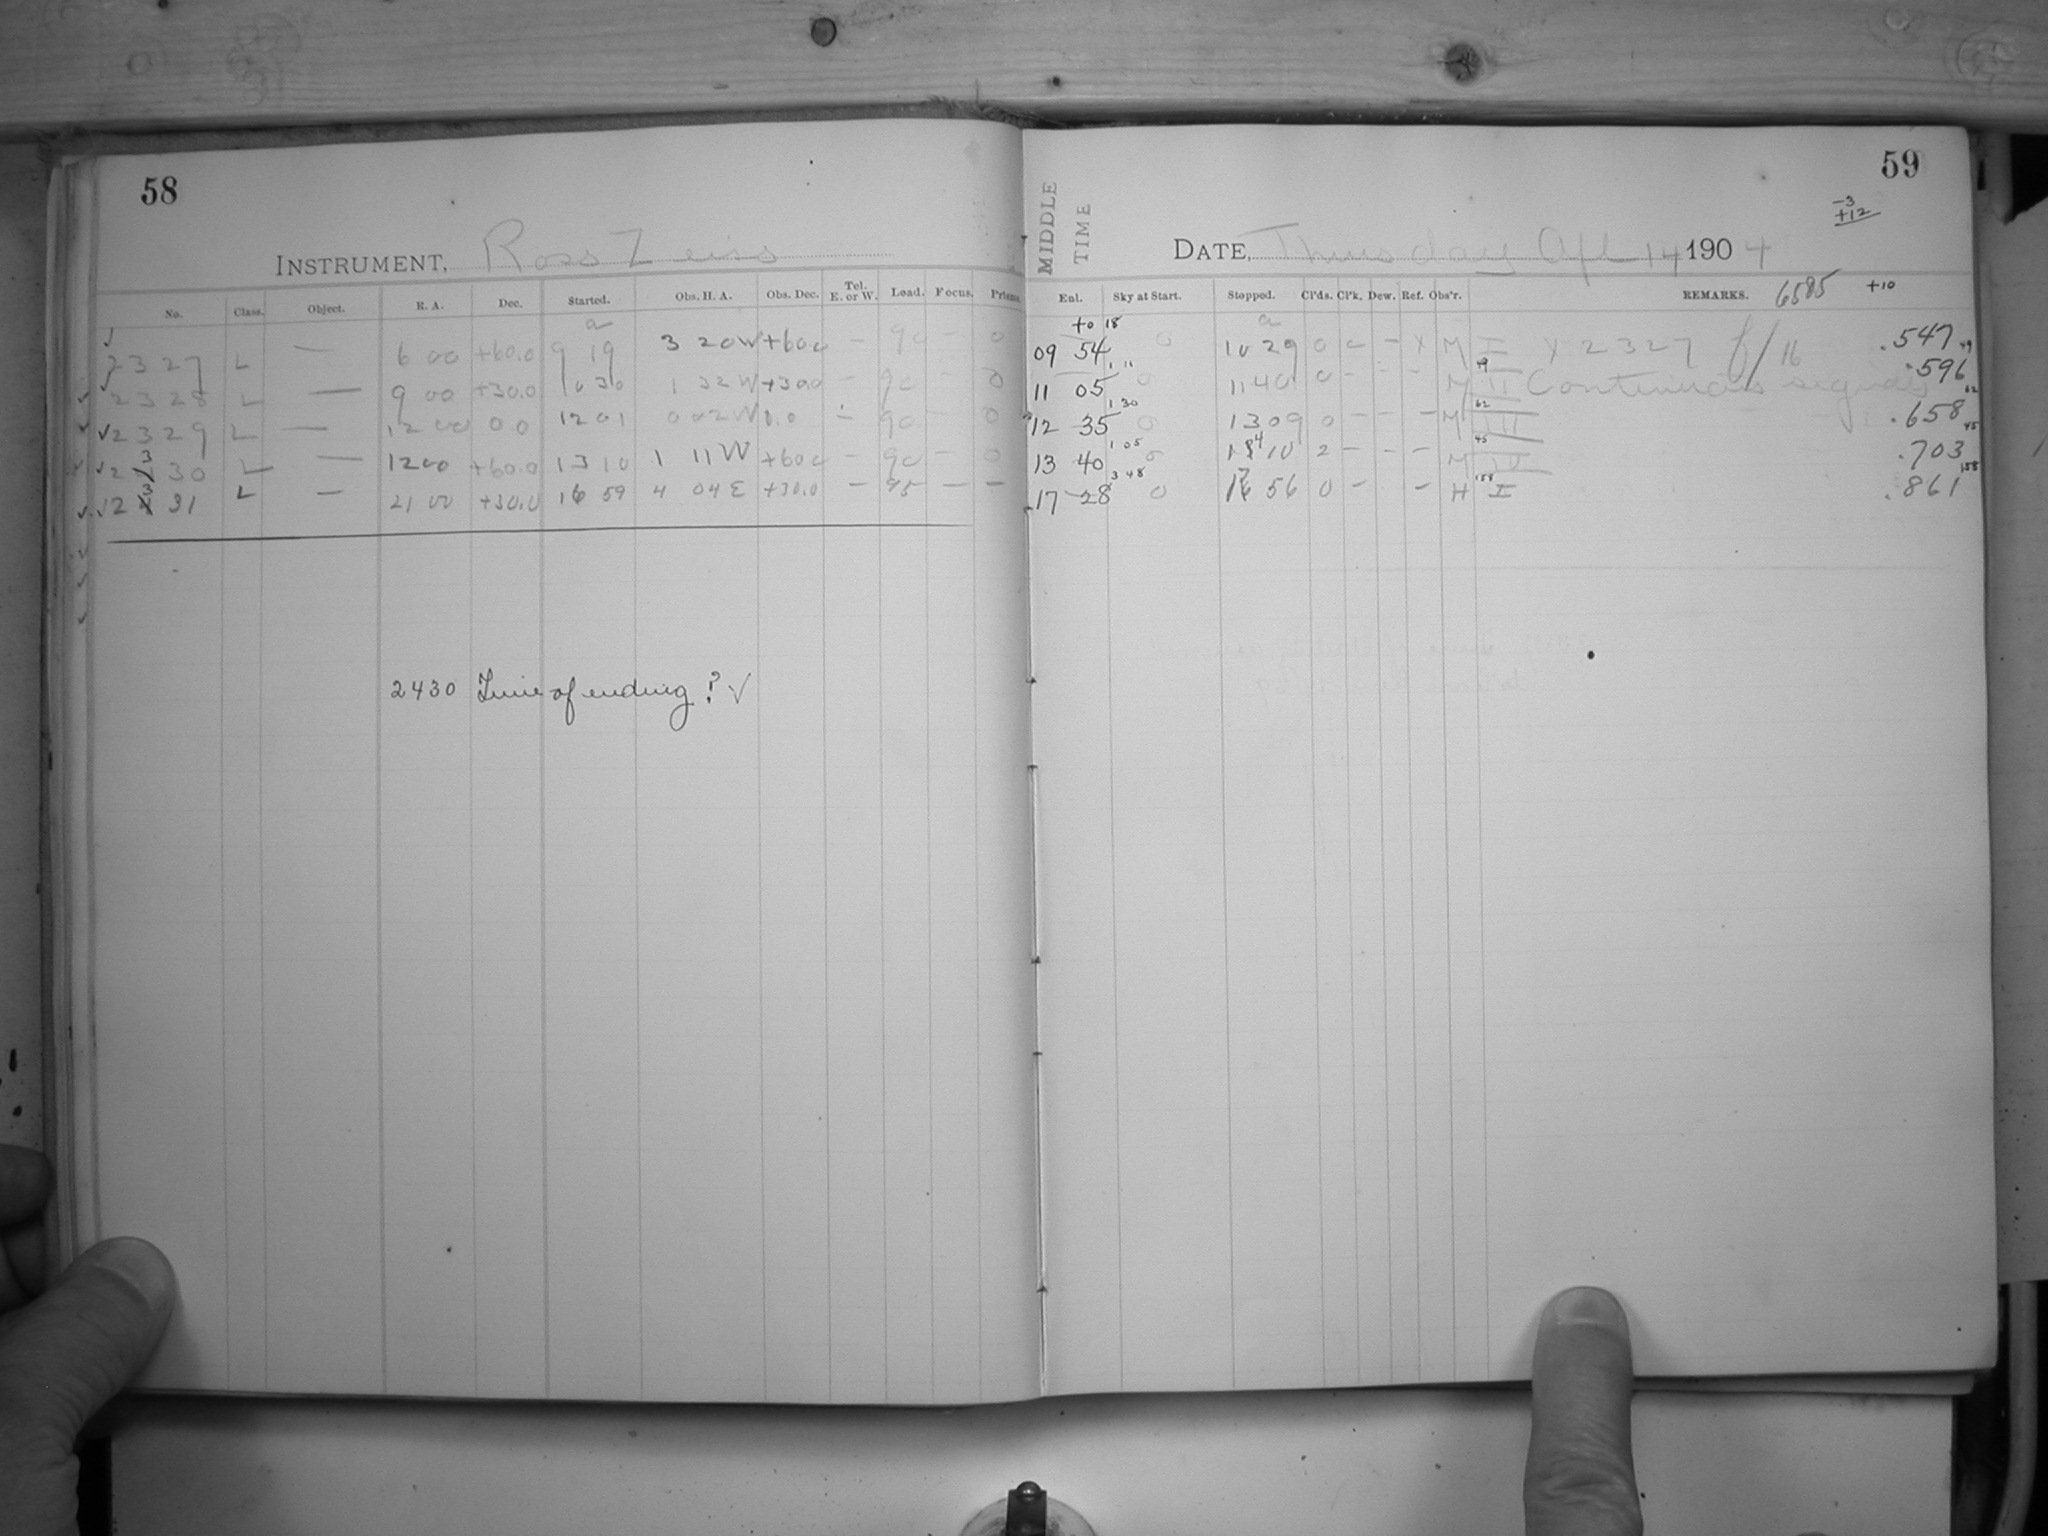 58
INSTRUMENT, Ross Zeiss
No. Class. Object. R. A. Dec. Started. Obs. H. A. Obs. Dec. Tel. E. or W. Load. Focus. Prisms.
a
2327 L — 6 00 +60.0 9 19 3 20W +60.0 — 90 — 0
2328 L — 9 00 +30.0 10 30 1 32W +30.0 — 90 — 0
2329 L — 12 00 0.0 12 01 0 02W 0.0 — 90 — 0
2330 L — 12 00 +60.0 13 10 1 11W +60.0 — 90 — 0
2331 L — 21 00 +30.0 16 59 4 04E +30.0 — 95 — —
2430 Time of ending? ✓
59
-3
+12
MIDDLE TIME
DATE, Thursday Apl 14 1904
Ent. Sky at Start. Stopped. Cl'ds. Cl'k. Dew. Ref. Obs'r. REMARKS. 6585 +10
+0 18 a
09 54 0 10 29 0 — — X M I X 2327 f/16 .547 49
1 11 49
11 05 0 11 40 0 — — — M II Continuous .596 62
1 30 62
12 35 0 13 09 0 — — — M III .658 45
1 05 45
13 40 0 14 10 2 — — — M IV .703 158
3 48 158
17 28 0 17 56 0 — — H I .861